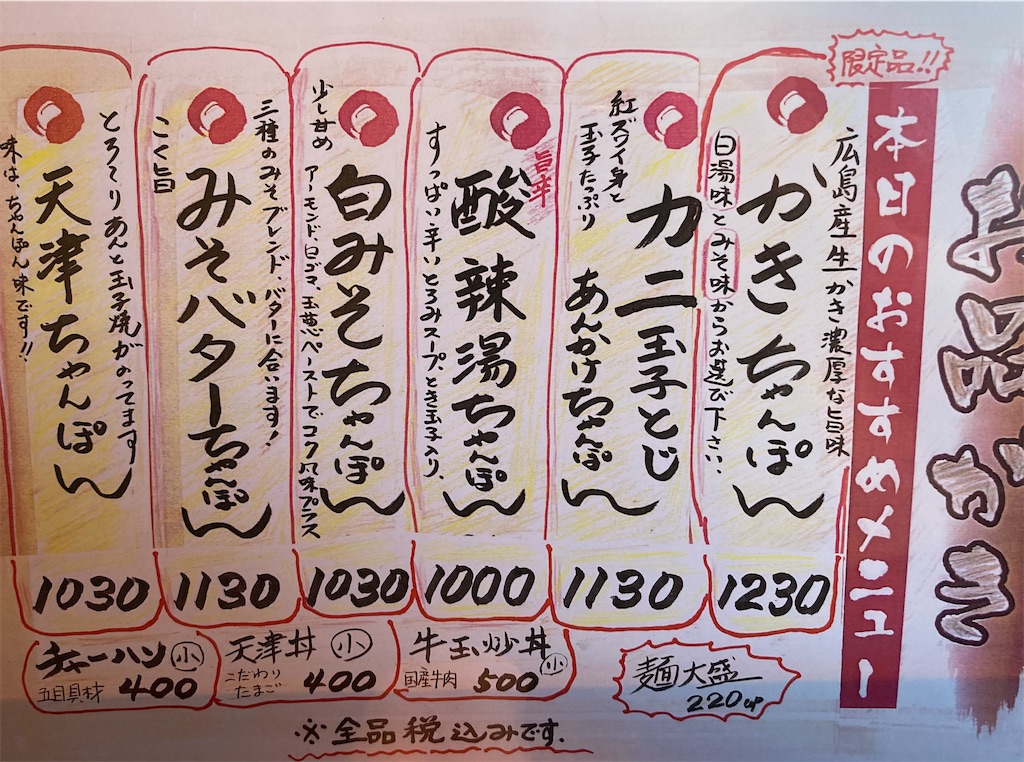 限定品!!
本日のおすすめメニュー
広島産生かき濃厚な旨味
かきちゃんぽん
白湯味とみそ味からお選び下さい、
1230
紅ズワイ身と
玉子たっぷり
カニ玉子とじ
あんかけちゃんぽん
1130
旨辛
酸辣湯ちゃんぽん
すっぱい・辛いとろみスープ、とき玉子入り、
1000
少し甘め
白みそちゃんぽん
アーモンド、白ゴマ、玉葱ペーストでコク風味プラス
1030
三種のみそブレンド、バターに合います!
みそバターちゃんぽん
こく旨
1130
とろ~りあんと玉子焼がのってます
天津ちゃんぽん
味は、ちゃんぽん味です!!
1030
牛玉炒丼 小
国産牛肉 500
天津丼 小
こだわり
たまご 400
チャーハン 小
五目具材 400
麺大盛
220
※全品税込みです.